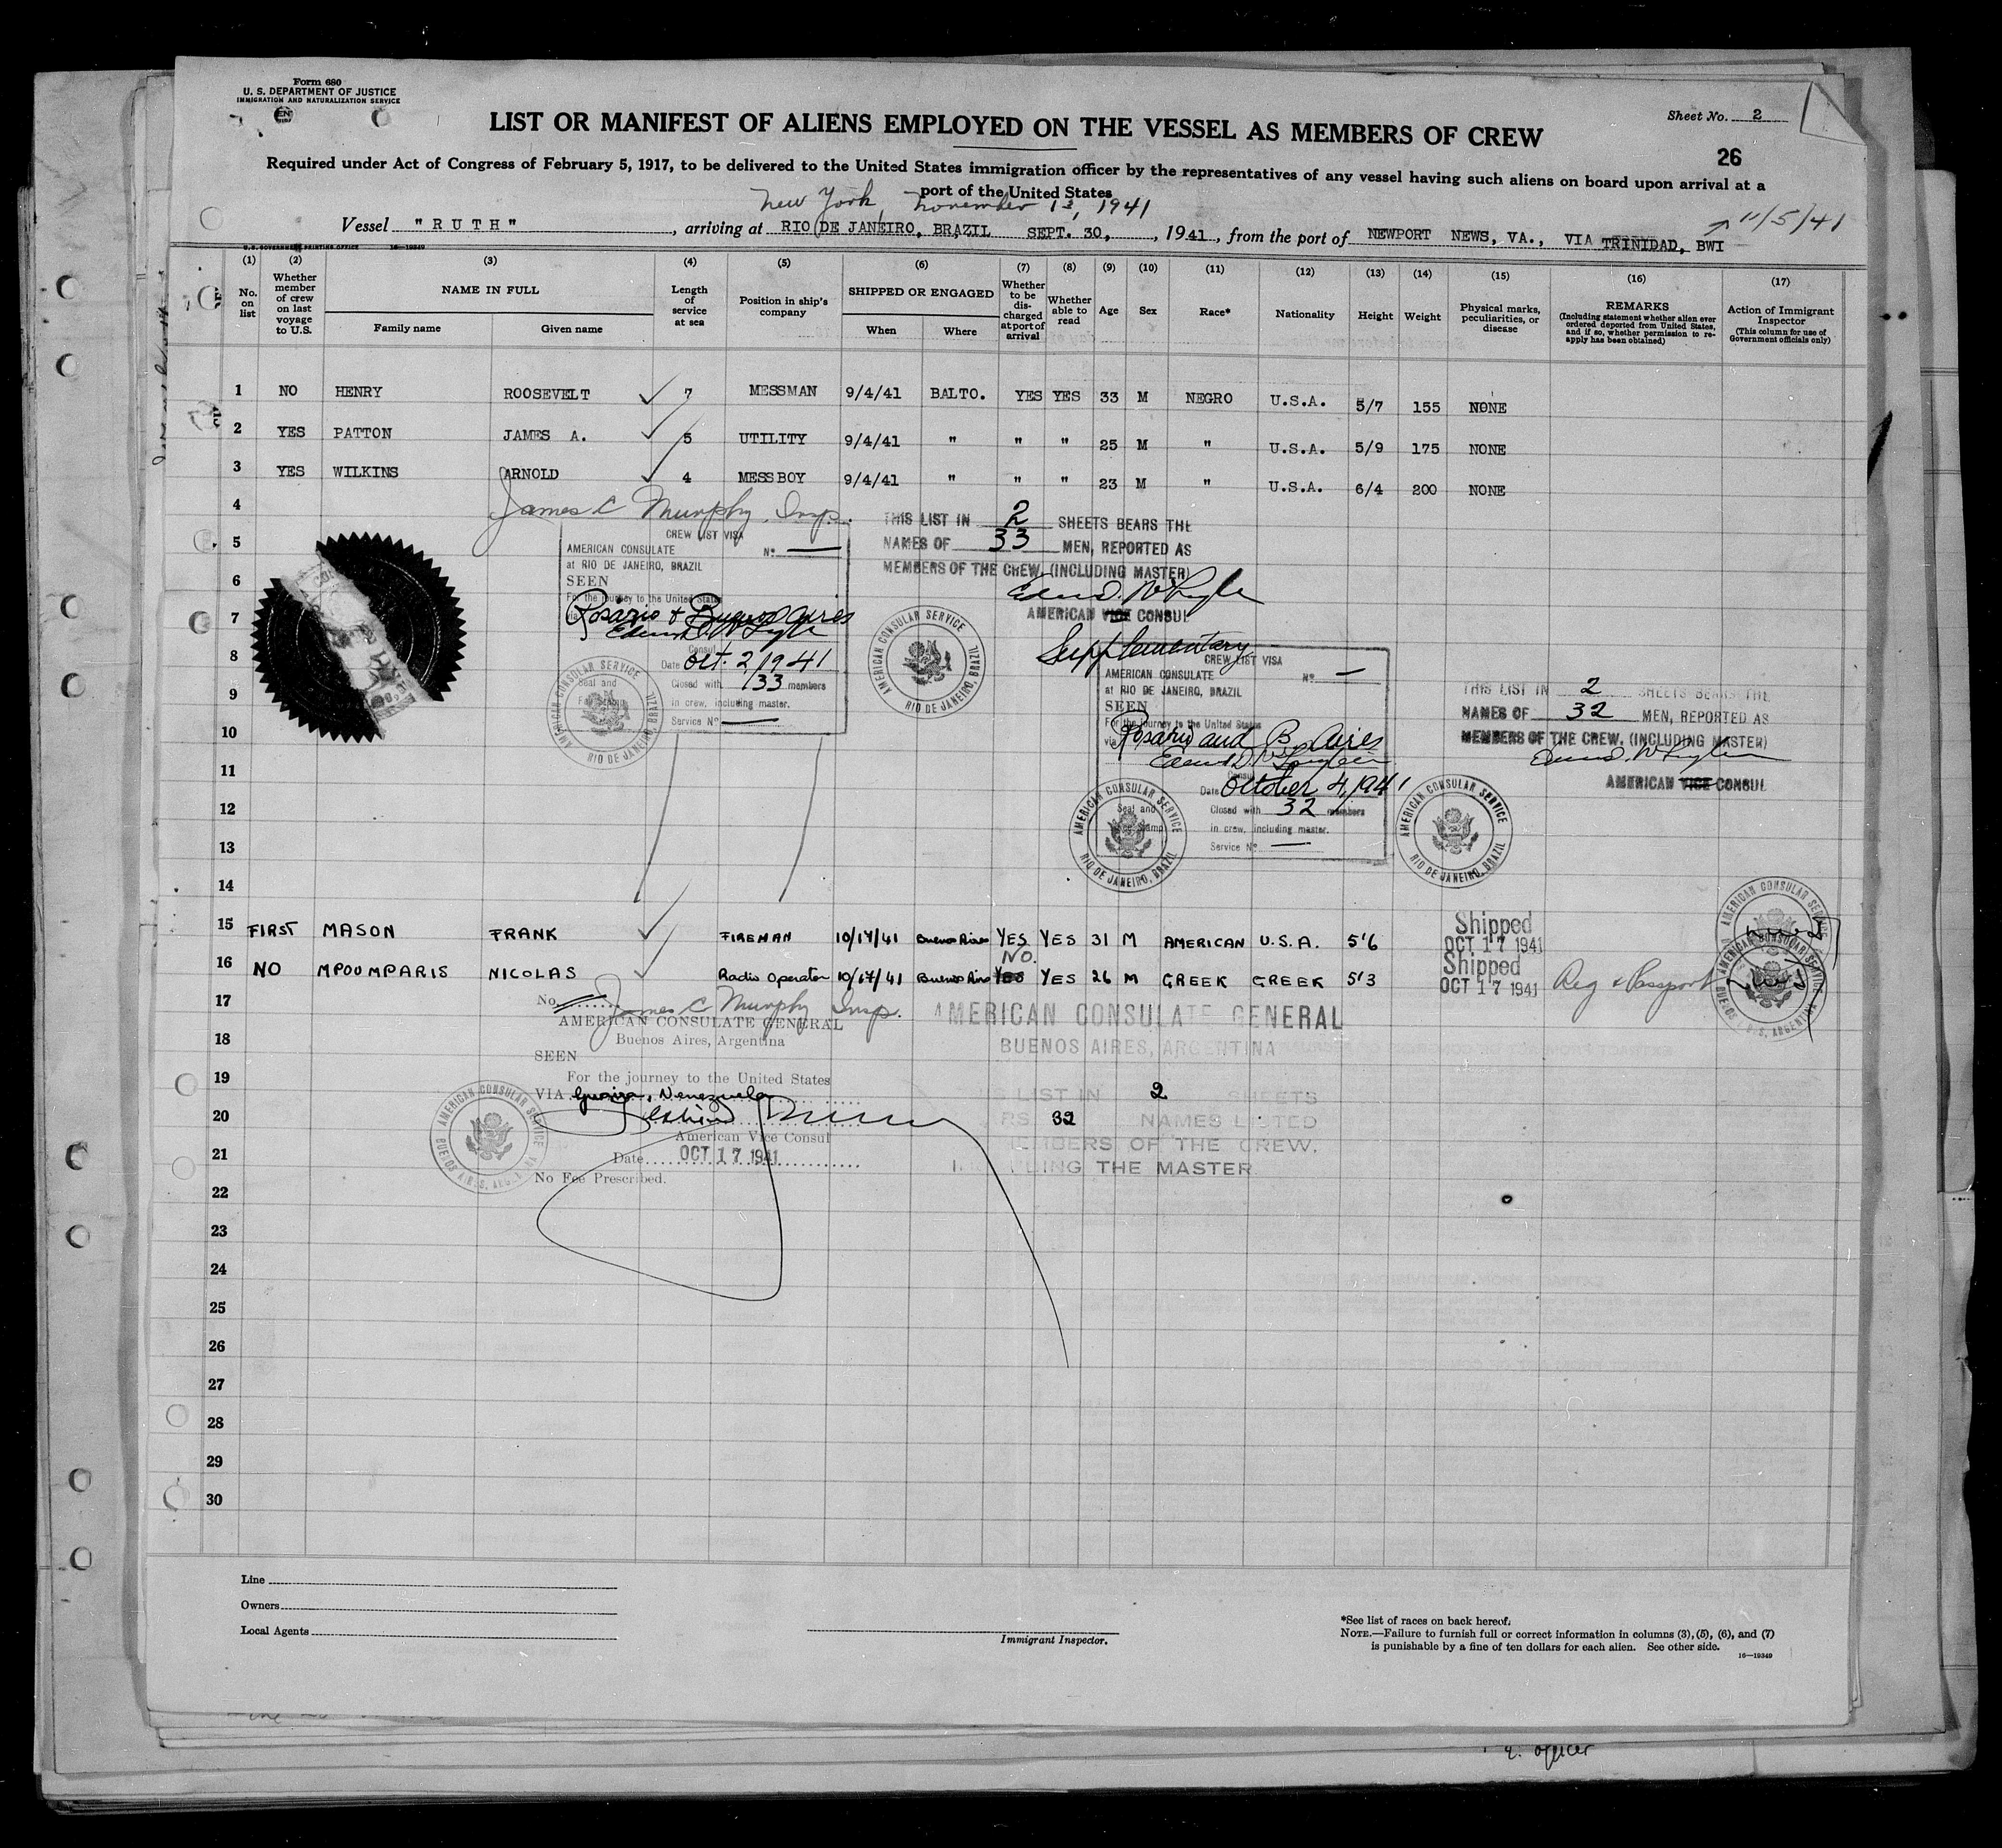 Form 680
U. S. DEPARTMENT OF JUSTICE
IMMIGRATION AND NATURALIZATION SERVICE
Sheet No. 2
LIST OR MANIFEST OF ALIENS EMPLOYED ON THE VESSEL AS MEMBERS OF CREW
26
Required under Act of Congress of February 5, 1917, to be delivered to the United States immigration officer by the representatives of any vessel having such aliens on board upon arrival at a
port of the United States
New York, November 13, 1941
11/5/41
Vessel "RUTH", arriving at RIO DE JANEIRO, BRAZIL SEPT. 30, , 1941, from the port of NEWPORT NEWS, VA., VIA TRINIDAD, BWI
U.S. GOVERNMENT PRINTING OFFICE 16—19349
(1) (2) (3) (4) (5) (6) (7) (8) (9) (10) (11) (12) (13) (14) (15) (16) (17)
No. on list
Whether member of crew on last voyage to U.S.
NAME IN FULL
Family name
Given name
Length of service at sea
Position in ship's company
SHIPPED OR ENGAGED
When
Where
Whether to be discharged at port of arrival
Whether able to read
Age
Sex
Race*
Nationality
Height
Weight
Physical marks, peculiarities, or disease
REMARKS
(Including statement whether alien ever ordered deported from United States, and if so, whether permission to reapply has been obtained)
Action of Immigrant Inspector
(This column for use of Government officials only)
1 NO HENRY ROOSEVELT 7 MESSMAN 9/4/41 BALTO. YES YES 33 M NEGRO U.S.A. 5/7 155 NONE
2 YES PATTON JAMES A. 5 UTILITY 9/4/41 " " " 25 M " U.S.A. 5/9 175 NONE
3 YES WILKINS ARNOLD 4 MESSBOY 9/4/41 " " " 23 M " U.S.A. 6/4 200 NONE
4
James C Murphy Insp.
5
6
7
8
9
10
11
12
13
14
CREW LIST VISA
AMERICAN CONSULATE No. —
at RIO DE JANEIRO, BRAZIL
SEEN
For the journey to the United States
via Rosario & Buenos Aires
Consul
Date Oct. 2, 1941
Closed with 33 members
in crew, including master.
Service No —
Seal and
AMERICAN CONSULAR SERVICE
RIO DE JANEIRO, BRAZIL
THIS LIST IN 2 SHEETS BEARS THE
NAMES OF 33 MEN, REPORTED AS
MEMBERS OF THE CREW, (INCLUDING MASTER)
AMERICAN VICE CONSUL
AMERICAN CONSULAR SERVICE
RIO DE JANEIRO, BRAZIL
Supplementary
CREW LIST VISA
AMERICAN CONSULATE No. —
at RIO DE JANEIRO, BRAZIL
SEEN
For the journey to the United States
via Rosario and B. Aires
Consul
Date October 4, 1941
Closed with 32 members
in crew, including master.
Service No —
Seal and
AMERICAN CONSULAR SERVICE
RIO DE JANEIRO, BRAZIL
THIS LIST IN 2 SHEETS BEARS THE
NAMES OF 32 MEN, REPORTED AS
MEMBERS OF THE CREW, (INCLUDING MASTER)
AMERICAN VICE CONSUL
AMERICAN CONSULAR SERVICE
RIO DE JANEIRO, BRAZIL
15 FIRST MASON FRANK FIREMAN 10/17/41 Buenos Aires YES YES 31 M AMERICAN U.S.A. 5'6 Shipped OCT 17 1941
NO.
16 NO MPOUMPARIS NICOLAS Radio Operator 10/17/41 Buenos Aires YES YES 26 M GREEK GREEK 5'3 Shipped OCT 17 1941 Reg & Passport
AMERICAN CONSULAR SERVICE
AMERICAN CONSULAR SERVICE
BUENOS AIRES, ARGENTINA
17
18
19
20
21
22
23
24
25
26
27
28
29
30
No.
James C Murphy Insp.
AMERICAN CONSULATE GENERAL
Buenos Aires, Argentina
SEEN
For the journey to the United States
VIA Guaira, Venezuela
American Vice Consul
Date OCT 17 1941
No Fee Prescribed.
AMERICAN CONSULAR SERVICE
BUENOS AIRES, ARGENTINA
AMERICAN CONSULATE GENERAL
BUENOS AIRES, ARGENTINA
LIST IN 2 SHEETS
32 NAMES LISTED
MEMBERS OF THE CREW,
INCLUDING THE MASTER
Line
Owners
Local Agents
Immigrant Inspector.
*See list of races on back hereof.
NOTE.—Failure to furnish full or correct information in columns (3), (5), (6), and (7)
is punishable by a fine of ten dollars for each alien. See other side.
16—19349
officer